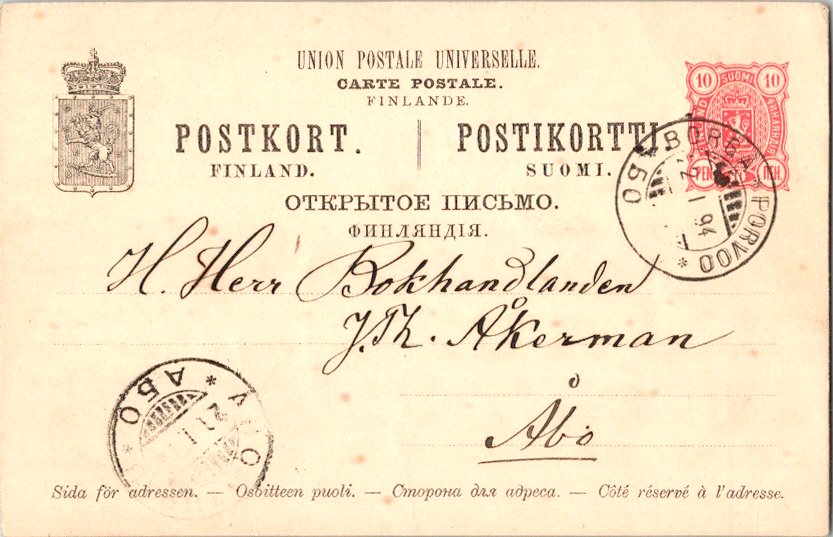 UNION POSTALE UNIVERSELLE.
CARTE POSTALE.
FINLANDE.
POSTKORT. POSTIKORTTI.
FINLAND. SUOMI.
ОТКРЫТОЕ ПИСЬМО.
ФИНЛЯНДІЯ.
10 SUOMI 10
PEN ПЕН.
BORGÅ * PORVOO *
1 94
H. Herr Bokhandlanden
J. Th. Åkerman
Åbo
* АБО *
21 1
Sida för adressen. — Osoitteen puoli. — Сторона для адреса. — Côté réservé à l'adresse.